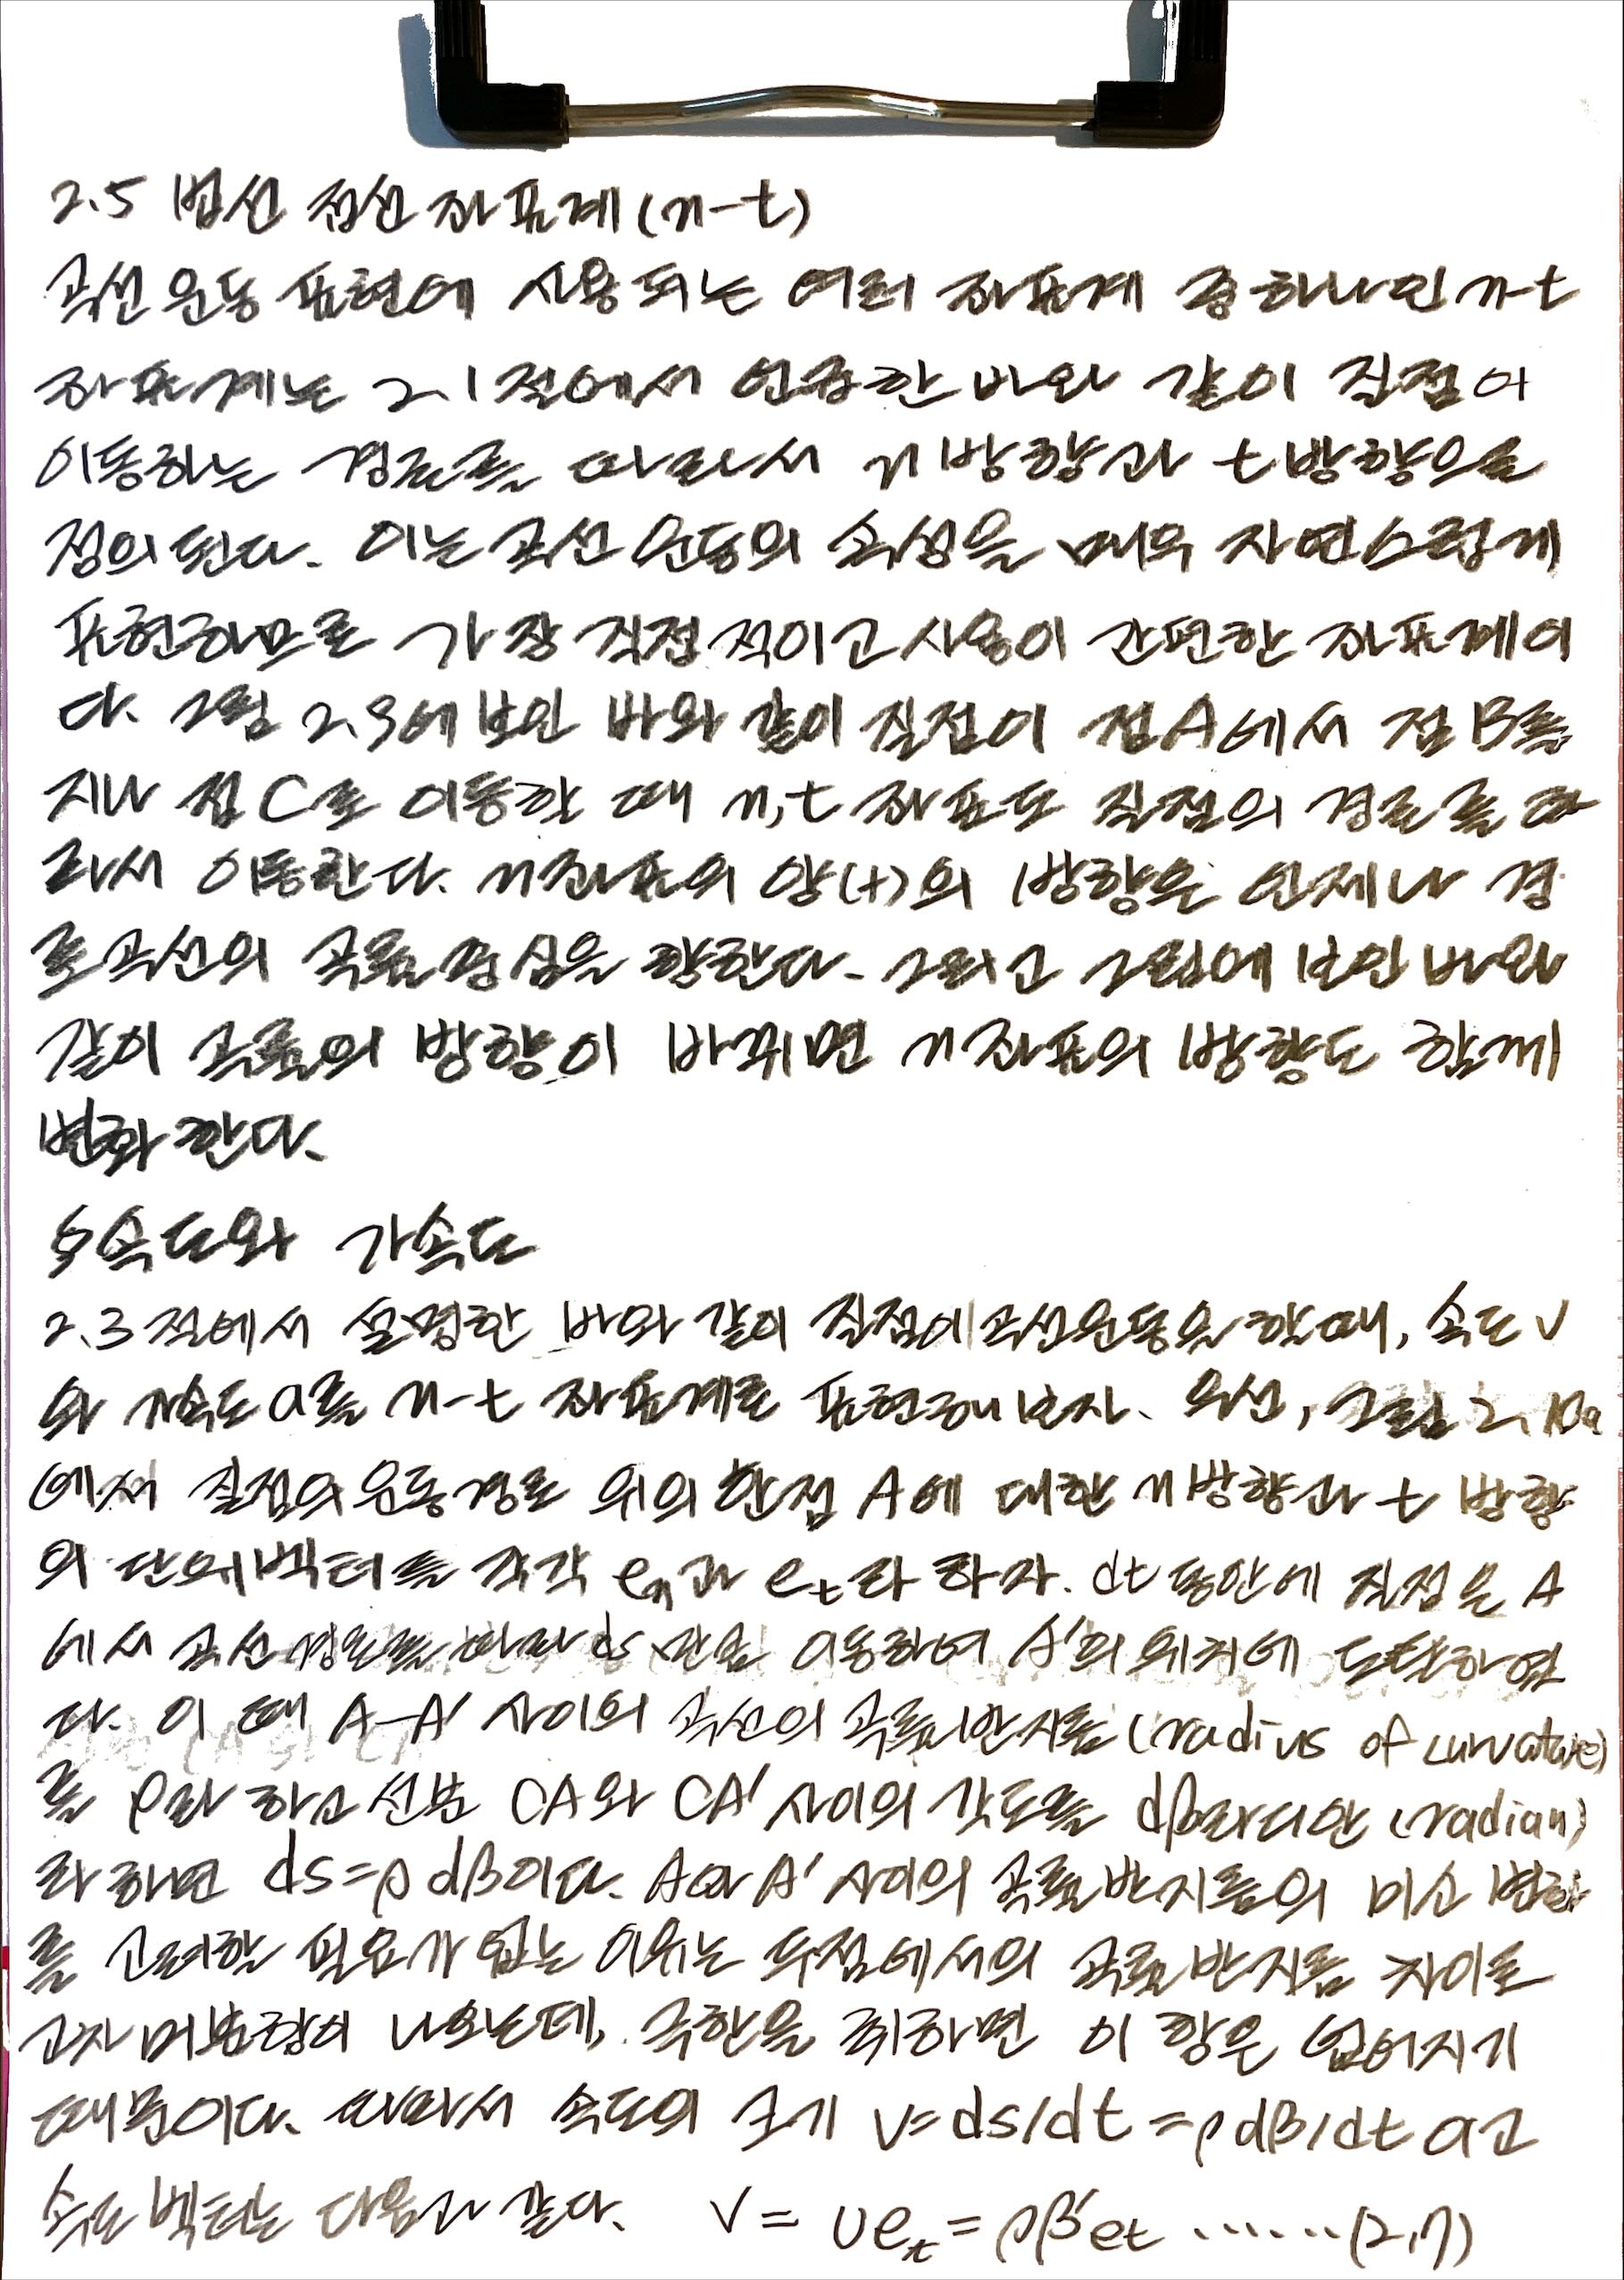 2.5 법선 접선 좌표계(n-t)
곡선 운동 표현에 사용되는 여러 좌표계 중 하나인 n-t
좌표계는 2.1절에서 언급한 바와 같이 질점이
이동하는 경로를 따라서 n방향과 t방향으로
정의된다. 이는 곡선 운동의 속성을 매우 자연스럽게
표현하므로 가장 직접적이고 사용이 간편한 좌표계이
다. 그림 2.9에 보인 바와 같이 질점이 점A에서 점B를
지나 점C로 이동할 때 n,t 좌표도 질점의 경로를 따
라서 이동한다. n좌표의 양(+)의 방향은 언제나 경
로곡선의 곡률중심을 향한다. 그리고 그림에 보인 바와
같이 곡률의 방향이 바뀌면 n좌표의 방향도 함께
변화한다.
속도와 가속도
2.3절에서 설명한 바와 같이 질점이 곡선운동을 할 때, 속도 v
와 가속도 a를 n-t 좌표계로 표현해보자. 우선, 그림 2.10a
에서 질점의 운동경로 위의 한점 A에 대한 n방향과 t 방향
의 단위벡터를 각각 en과 et라 하자. dt동안에 질점은 A
에서 곡선경로를 따라 ds 만큼 이동하여 A'의 위치에 도달하였
다. 이 때 A-A' 사이의 곡선의 곡률반지름(radius of curvature)
를 ρ라 하고 선분 CA와 CA' 사이의 각도를 dβ라디안(radian)
라 하면 ds=ρdβ이다. A와 A' 사이의 곡률반지름의 미소 변화
를 고려할 필요가 없는 이유는 두점에서의 곡률반지름 차이로
고차 미분항이 나오는데, 극한을 취하면 이 항은 없어지기
때문이다. 따라서 속도의 크기 v=ds/dt=ρdβ/dt 이고
속도 벡터는 다음과 같다. v= vet=ρβ'et ......(2,7)